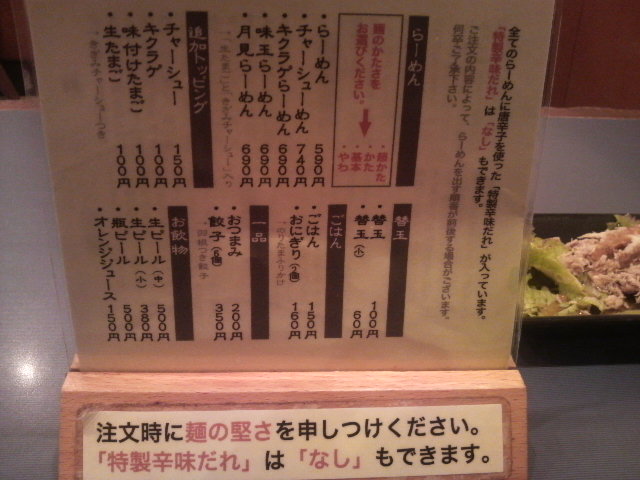 全てのらーめんに唐辛子を使った「特製辛味だれ」が入っています。
「特製辛味だれ」は「なし」もできます。
ご注文の内容によって、らーめんを出す順番が前後する場合がございます。
何卒ご了承下さい。
らーめん
麺のかたさを
お選びください。
・超かた
・かた
・基本
・やわ
・らーめん 590円
・チャーシューめん 740円
・キクラゲらーめん 690円
・味玉らーめん 690円
・月見らーめん 690円
追加トッピング
・チャーシュー 150円
・キクラゲ 100円
・味付けたまご 100円
・生たまご 100円
替玉
・替玉 100円
・替玉(小) 60円
ごはん
・ごはん 150円
・おにぎり(2個) 160円
一品
・おつまみ 200円
・餃子(6個) 350円
お飲物
・生ビール(中) 500円
・生ビール(小) 380円
・瓶ビール 500円
・オレンジジュース 150円
注文時に麺の堅さを申しつけください。
「特製辛味だれ」は「なし」もできます。